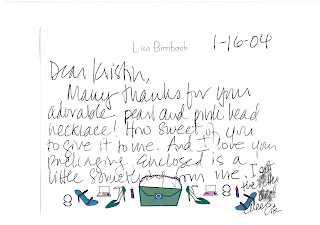 Lisa Birnbach
1-16-04
Dear Kristin,
Many thanks for your
adorable pearl and pink bead
necklace! How sweet of you
to give it to me. And I love your
packaging. Enclosed is a
little something from me. I
the